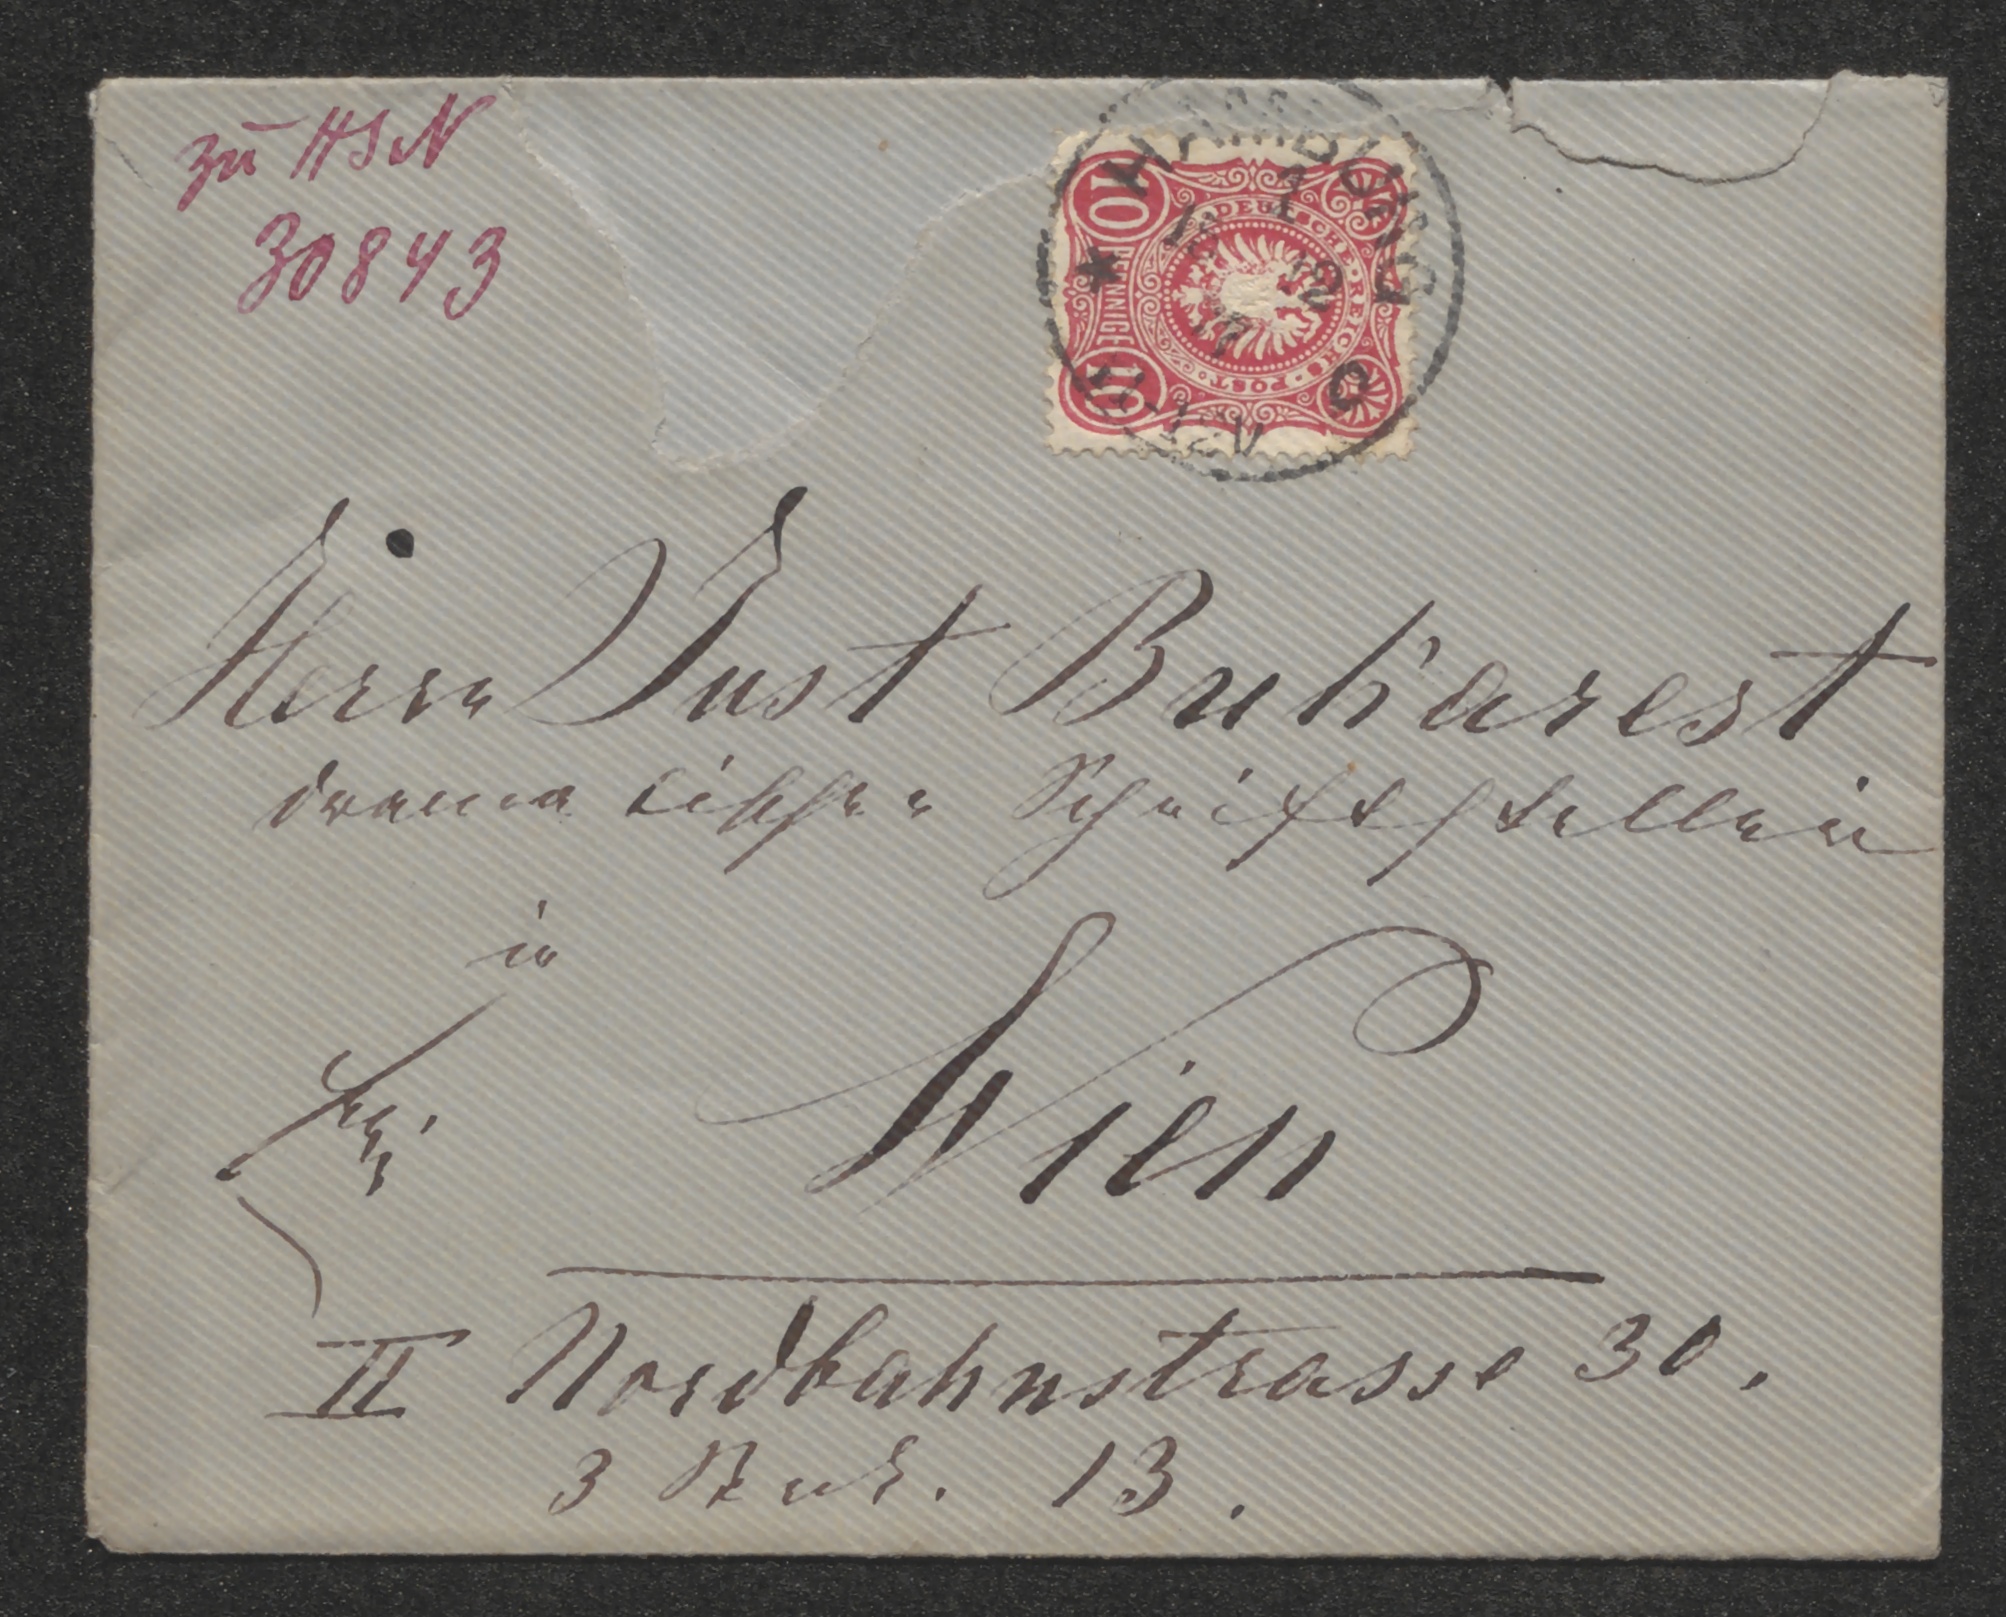 zu HSN
30843
HAMBURG
1
12
10 PFENNIGE 10
DEUTSCHE REICHS-POST
Herrn Just Bukarest
dramatischer Schriftsteller in
in
Wien
II Nordbahnstrasse 30.
3 Stock. 13.